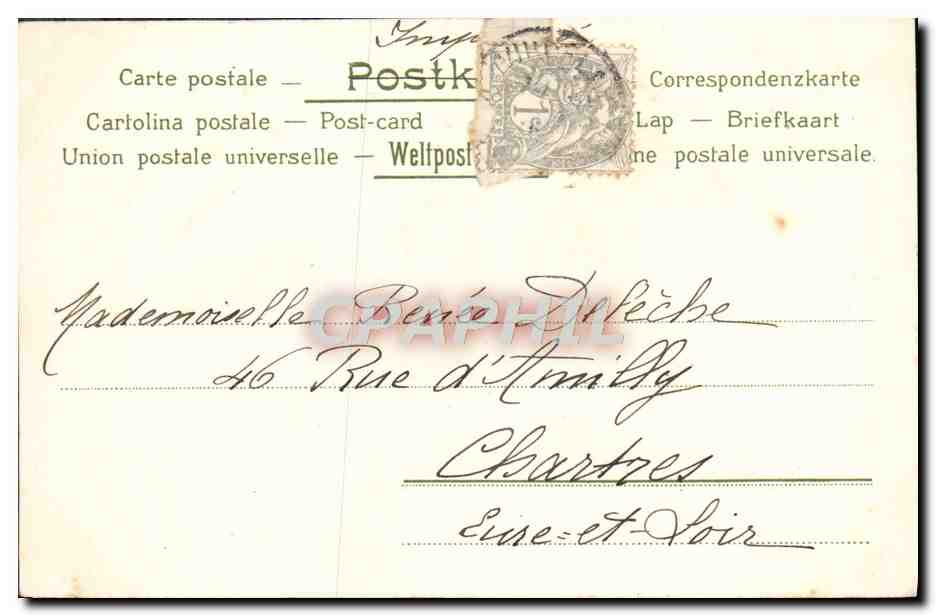 Carte postale — Postk Correspondenzkarte
Cartolina postale — Post-card Lap — Briefkaart
Union postale universelle — Weltpost ne postale universale.
1c
CPAPHIL
Mademoiselle Renée Delêche
46 Rue d'Amilly
Chartres
Eure=et-Loir